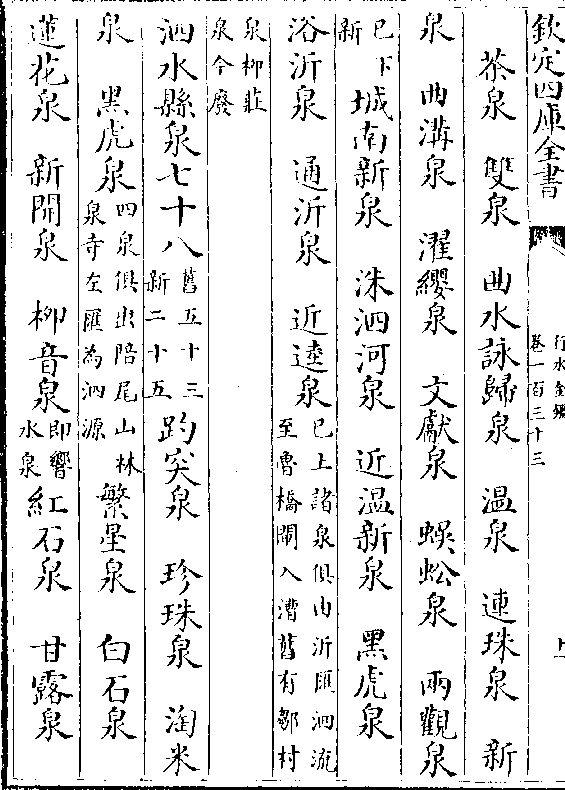 欽定四庫全書
行水金鑑
卷一百三十三
茶泉　雙泉　曲水詠歸泉　溫泉　連珠泉　新
泉　曲溝泉　濯纓泉　文獻泉　蜈蚣泉　兩觀泉
已下
新
城南新泉　洙泗河泉　近溫新泉　黑虎泉
浴沂泉　通沂泉　近逵泉
已上諸泉俱由沂匯泗流
至魯橋閘入漕舊有鄒村
泉柳莊
泉今廢
泗水縣泉七十八
舊五十三
新二十五
趵突泉　珍珠泉　淘米
泉　黑虎泉
四泉俱出陪尾山林
泉寺左匯為泗源
繁星泉　白石泉
蓮花泉　新開泉　柳音泉
即響
水泉
紅石泉　甘露泉